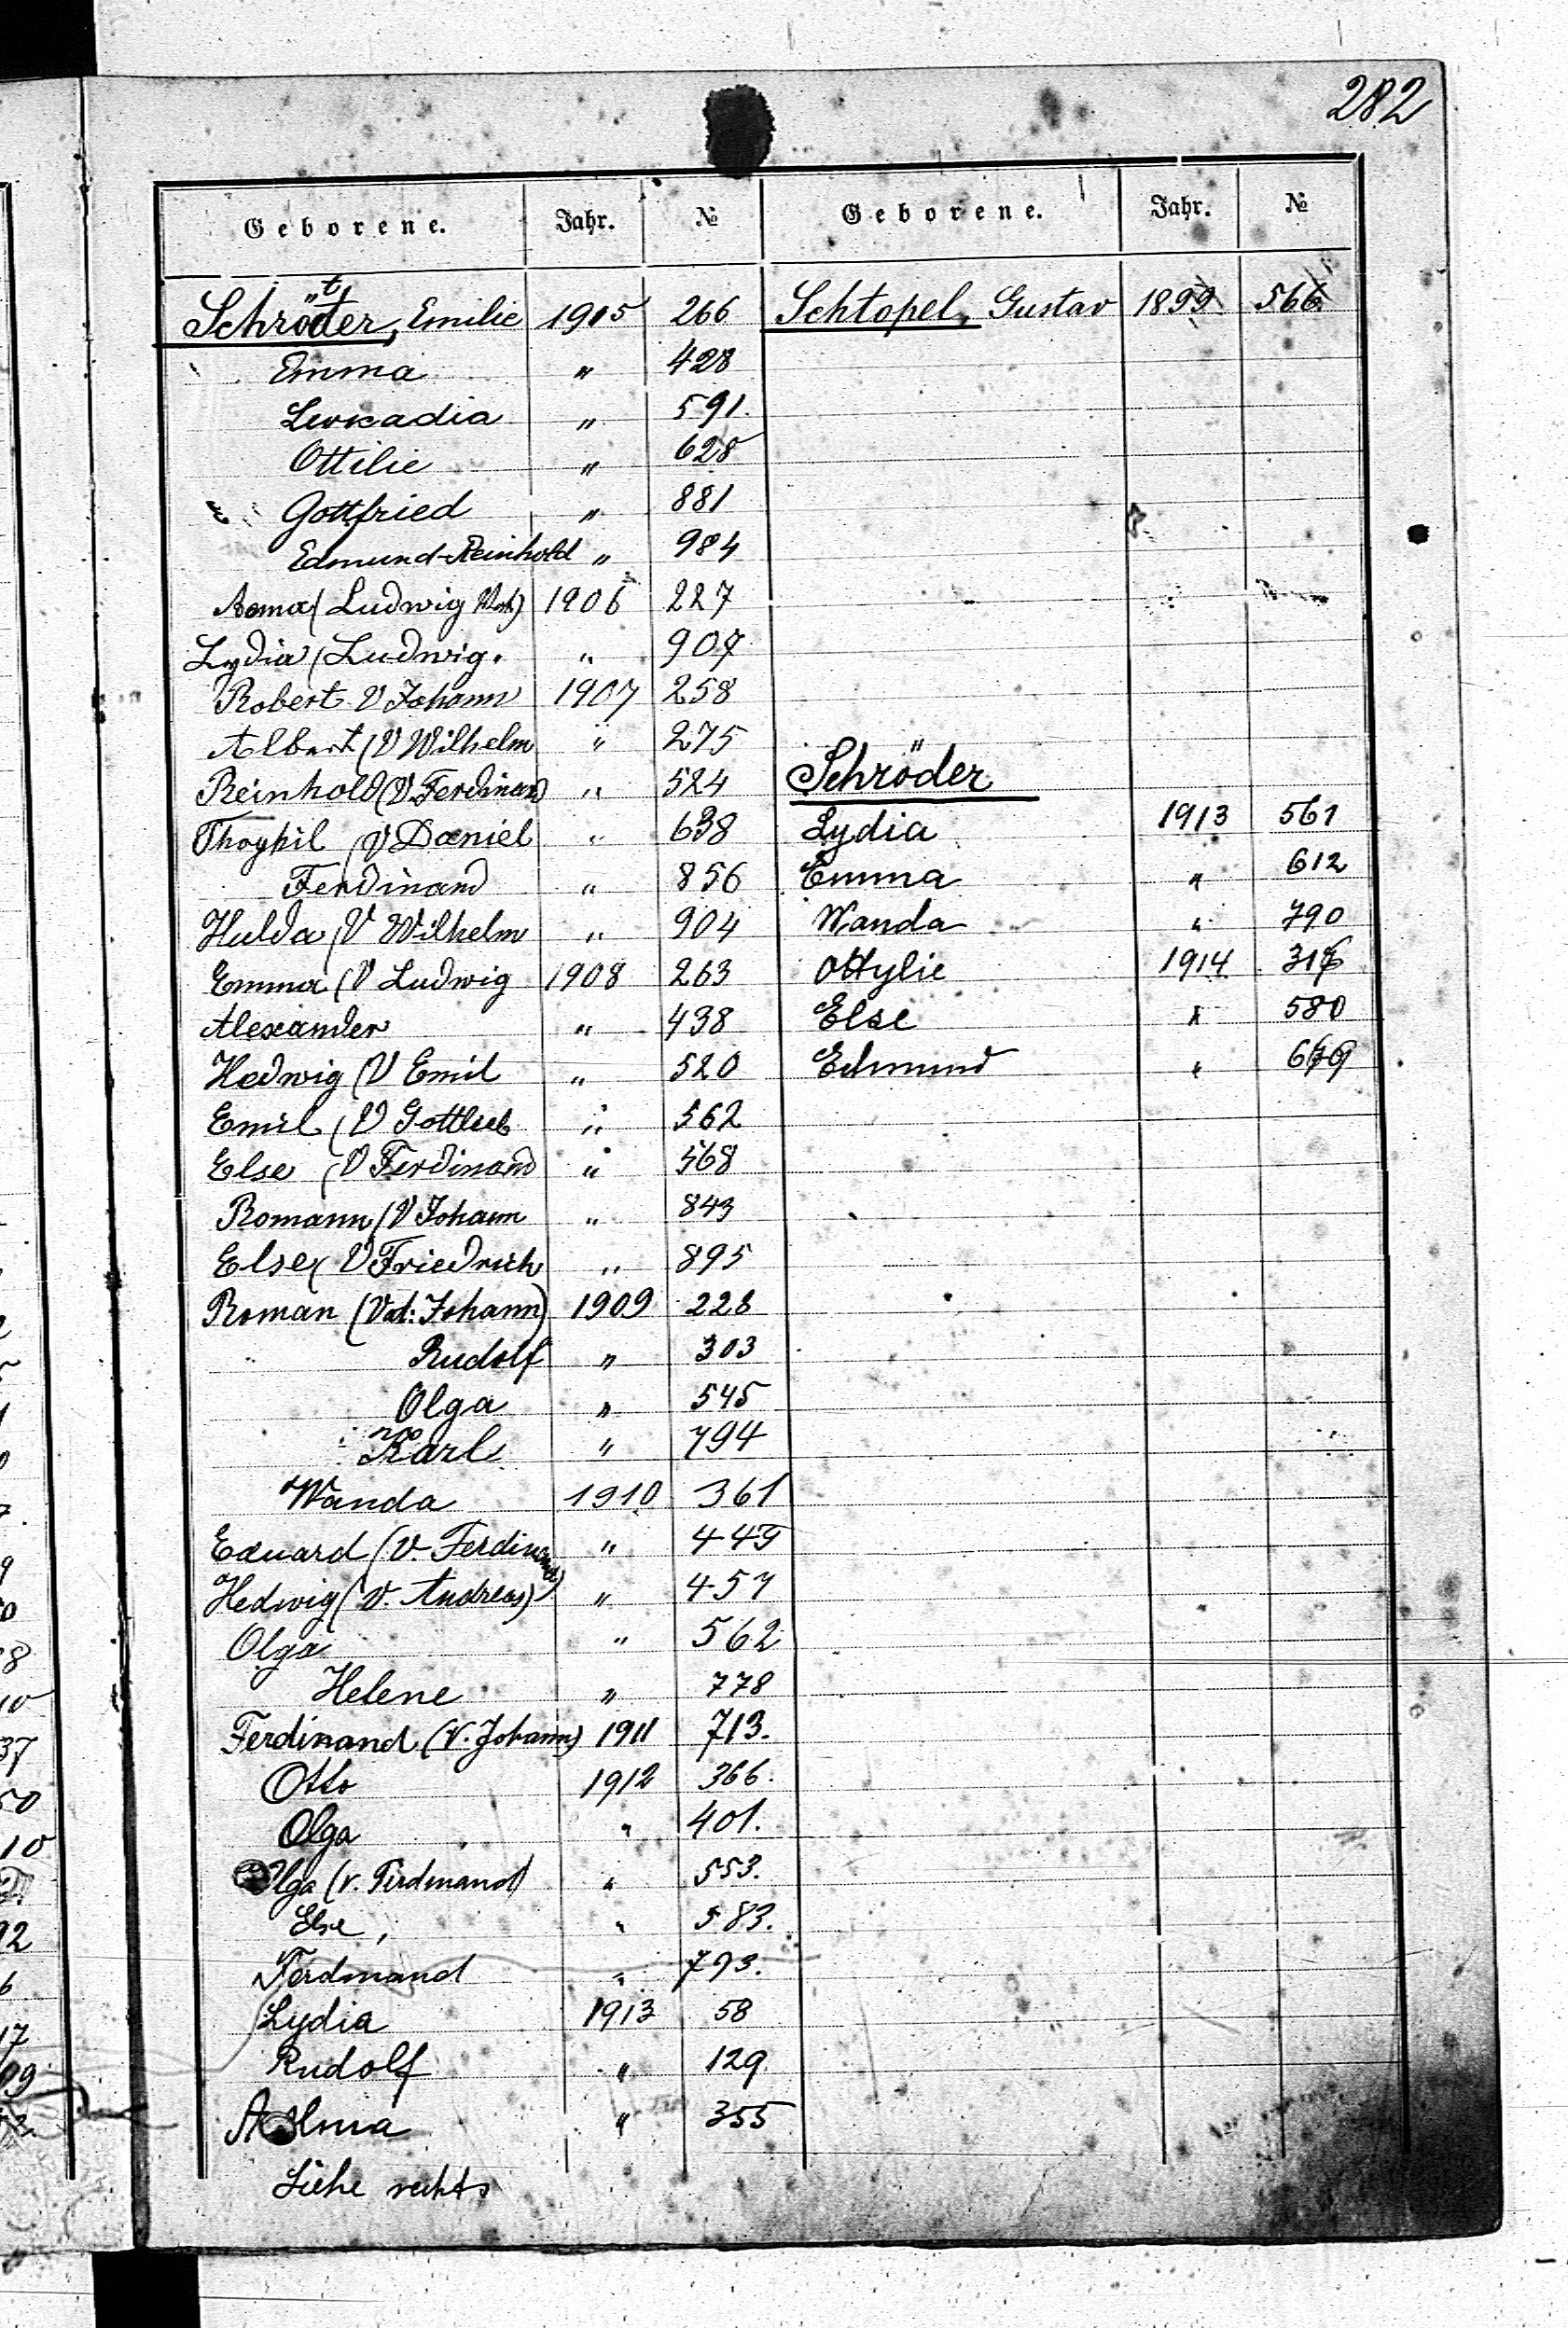 282
Geborene. Jahr. № Geborene. Jahr. №
Schröder, Emilie 1905 266
Emma " 428
Leokadia " 591.
Ottilie " 628
Gottfried " 881
Edmund-Reinhold " 984
(Ludwig Vat) 1906 227
Lydia (Ludwig. " 907
Robert V Johann 1907 258
Albert (V Wilhelm " 275
Reinhold (V. Ferdinand " 524
Thophil (V Daniel " 638
Ferdinand " 856
Hulda (V Wilhelm " 904
Emma (V Ludwig 1908 263
Alexander " 438
Hedwig (V Emil " 520
Emil (V Gottlieb " 562
Else (V Ferdinand " 568
Romann (V Johann " 843
Else (V Friedrich " 895
Roman (Vat: Johann) 1909 228
Rudolf " 303
Olga " 545
Karl " 794
Wanda 1910 361
Eduard (V. Ferdinand) " 449
Hedwig (V. Andreas) " 457
Olga " 562
Helene " 778
Ferdinand (V. Johann) 1911 713.
Otto 1912 366.
Olga " 401.
Olga (v. Ferdinand) " 553.
Else, " 583.
Ferdinand " 793.
Lydia 1913 58
Rudolf " 129
Alma " 355
Siehe rechts
Schtopel, Gustav 1899 566
Schröder
Lydia 1913 561
Emma " 612
Wanda " 790
Ottylie 1914
Else " 580
Edmund " 679